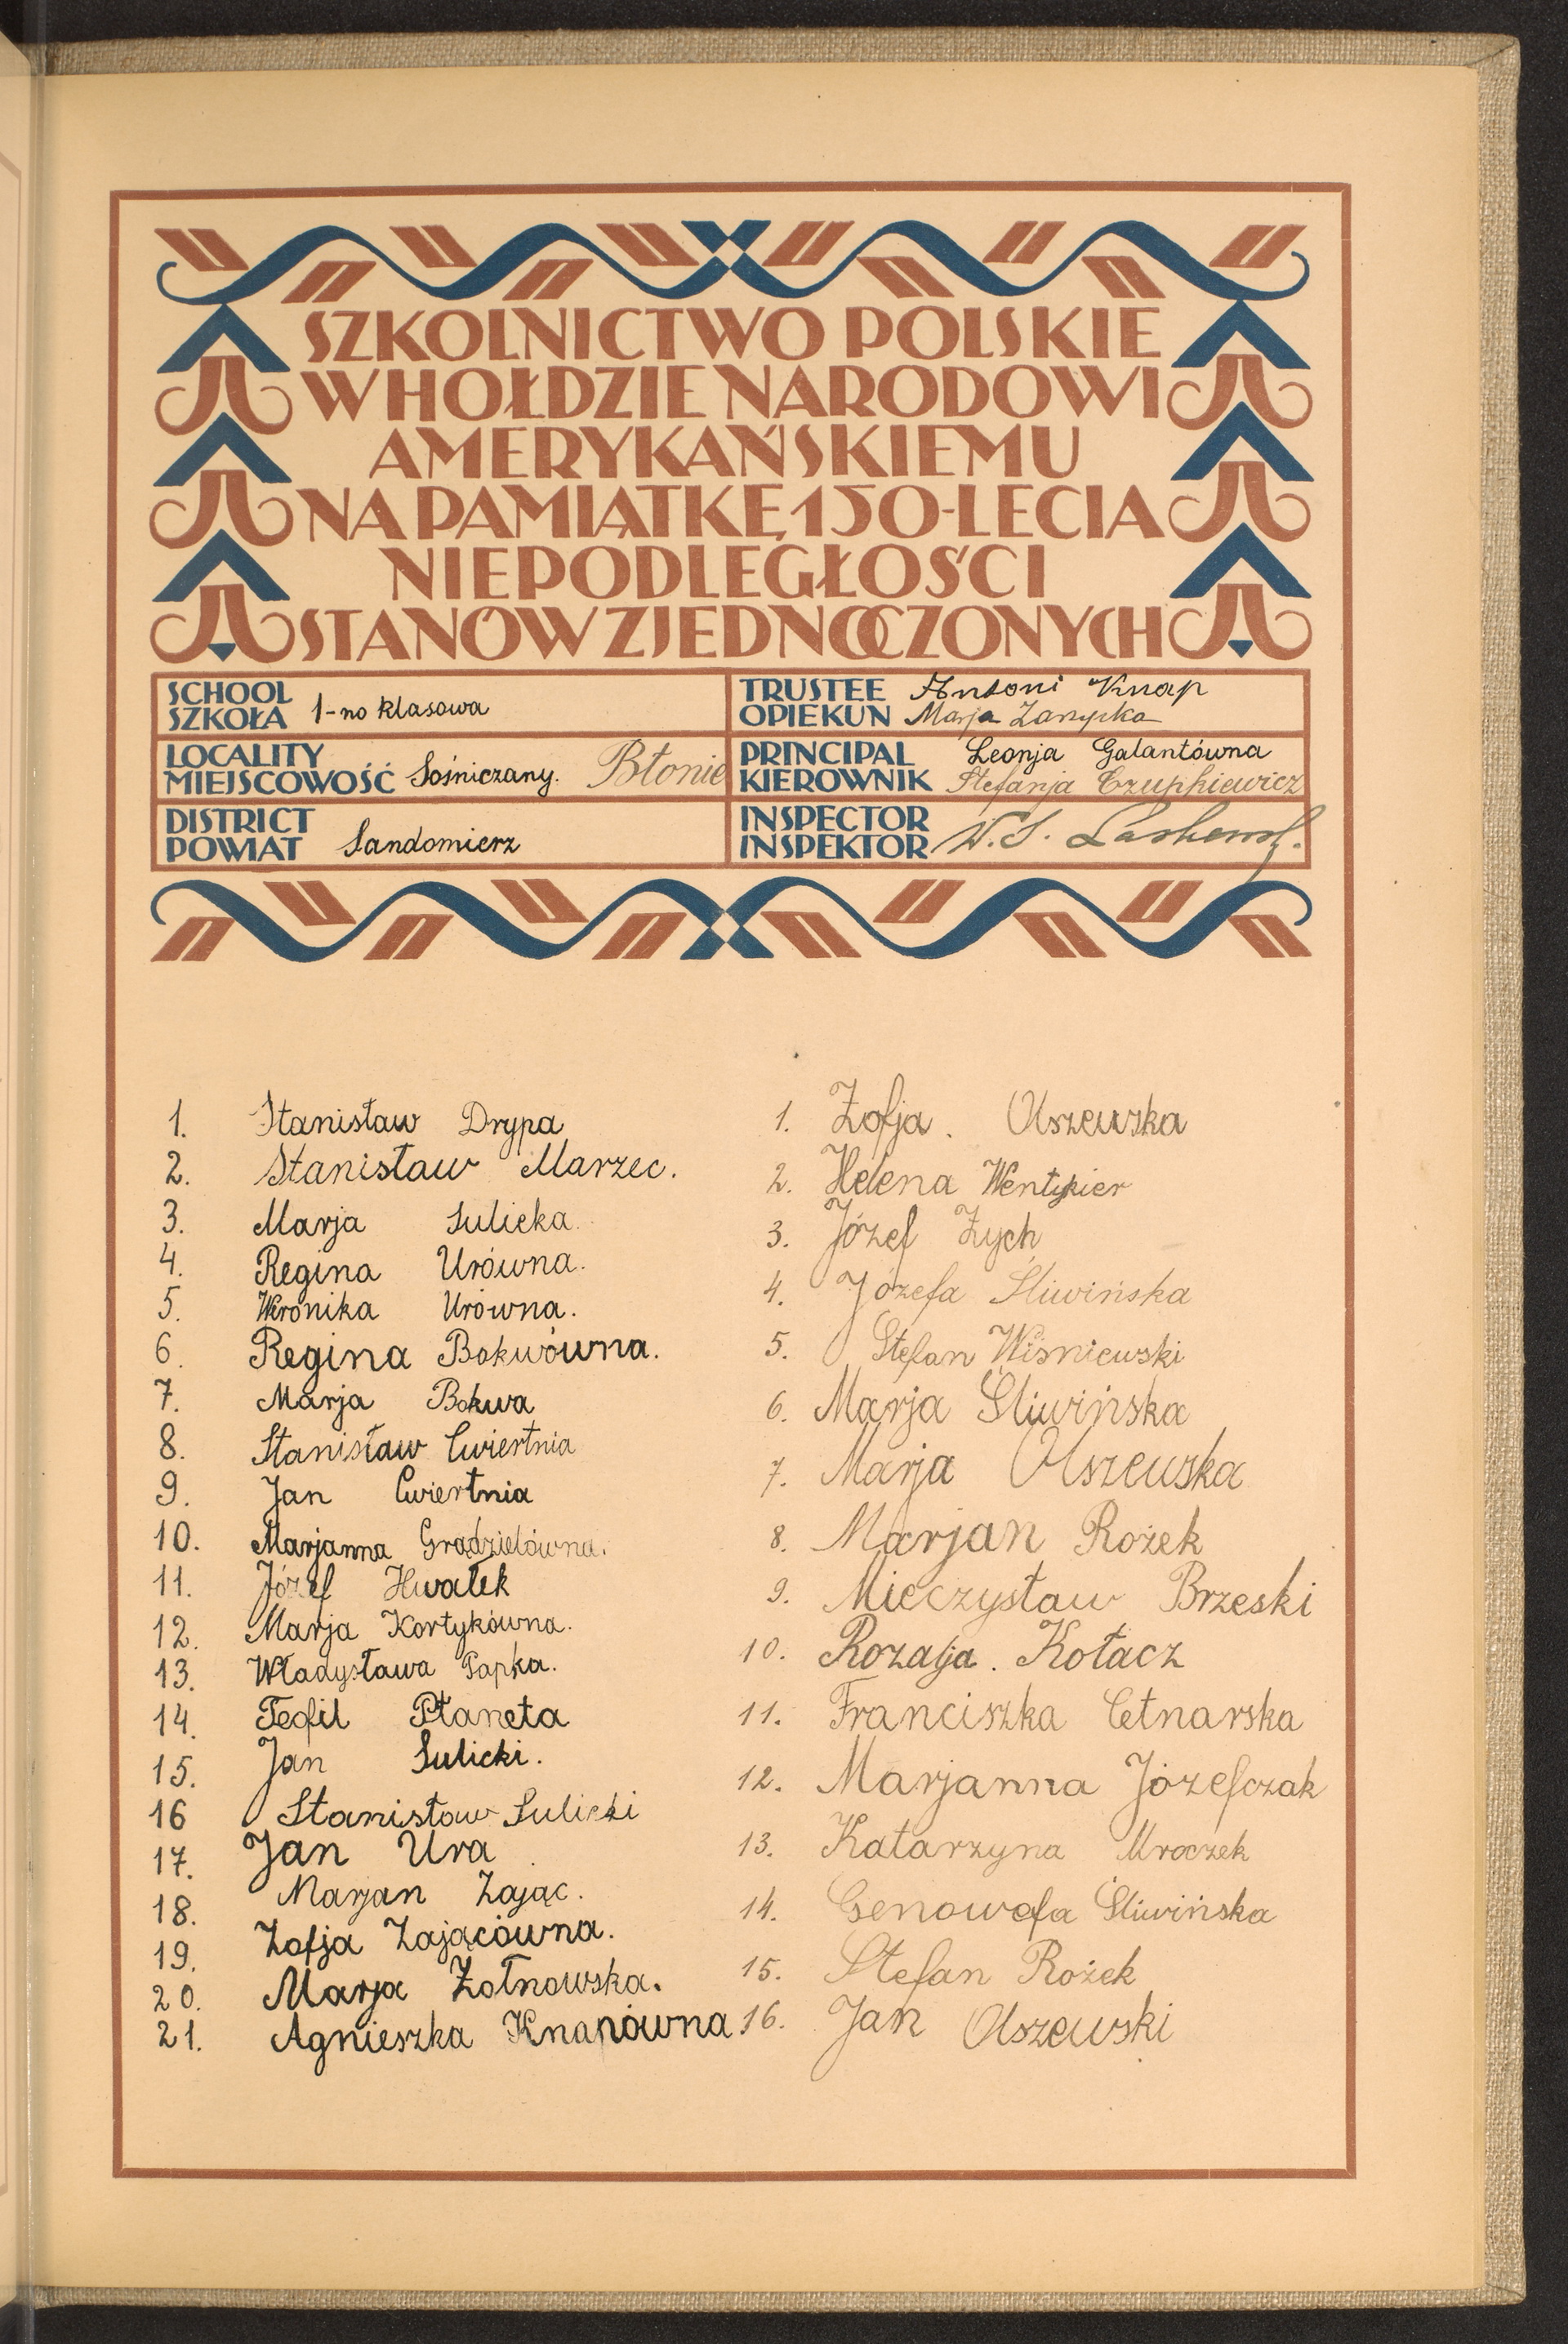 SZKOLNICTWO POLSKIE
W HOŁDZIE NARODOWI
AMERYKAŃSKIEMU
NA PAMIĄTKĘ 150-LECIA
NIEPODLEGŁOŚCI
STANÓW ZJEDNOCZONYCH
SCHOOL
SZKOŁA 1-no klasowa
TRUSTEE Antoni Knap
OPIEKUN Marja Zarzycka
LOCALITY
MIEJSCOWOŚĆ Sośniczany. Błonie
PRINCIPAL Leonja Galantówna
KIEROWNIK Stefanja Czupkiewicz
DISTRICT
POWIAT Sandomierz
INSPECTOR
INSPEKTOR W. S.
1. Stanisław Drypa
2. Stanisław Marzec.
3. Marja Sulicka.
4. Regina Urówna.
5. Weronika Urówna.
6. Regina Bokwówna.
7. Marja Bokwa
8. Stanisław Cwiertnia
9. Jan Cwiertnia
10. Marjanna Grądzielówna.
11. Józef Hwałek
12. Marja Kortykówna.
13. Władysława Papka.
14. Teofil Płaneta
15. Jan Sulicki.
16 Stanisław Sulicki
17. Jan Ura
18. Marjan Zając.
19. Zofja Zającówna.
20. Marja Żołnowska.
21. Agnieszka Knapówna
1. Zofja. Olszewska
2. Helena Wentykier
3. Józef Zych
4. Józefa Śliwińska
5. Stefan Wiśniewski
6. Marja Śliwińska
7. Marja Olszewska
8. Marjan Rożek
9. Mieczysław Brzeski
10. Rozalja. Kołacz
11. Franciszka Cetnarska
12. Marjanna Józefczak
13. Katarzyna Mroczek
14. Genowefa Śliwińska
15. Stefan Rożek
16. Jan Olszewski